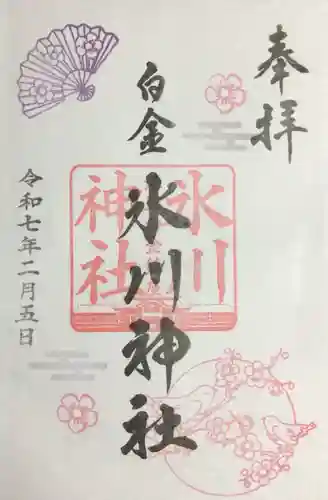 奉拝
白金
氷川神社
氷川
神社
令和七年二月五日